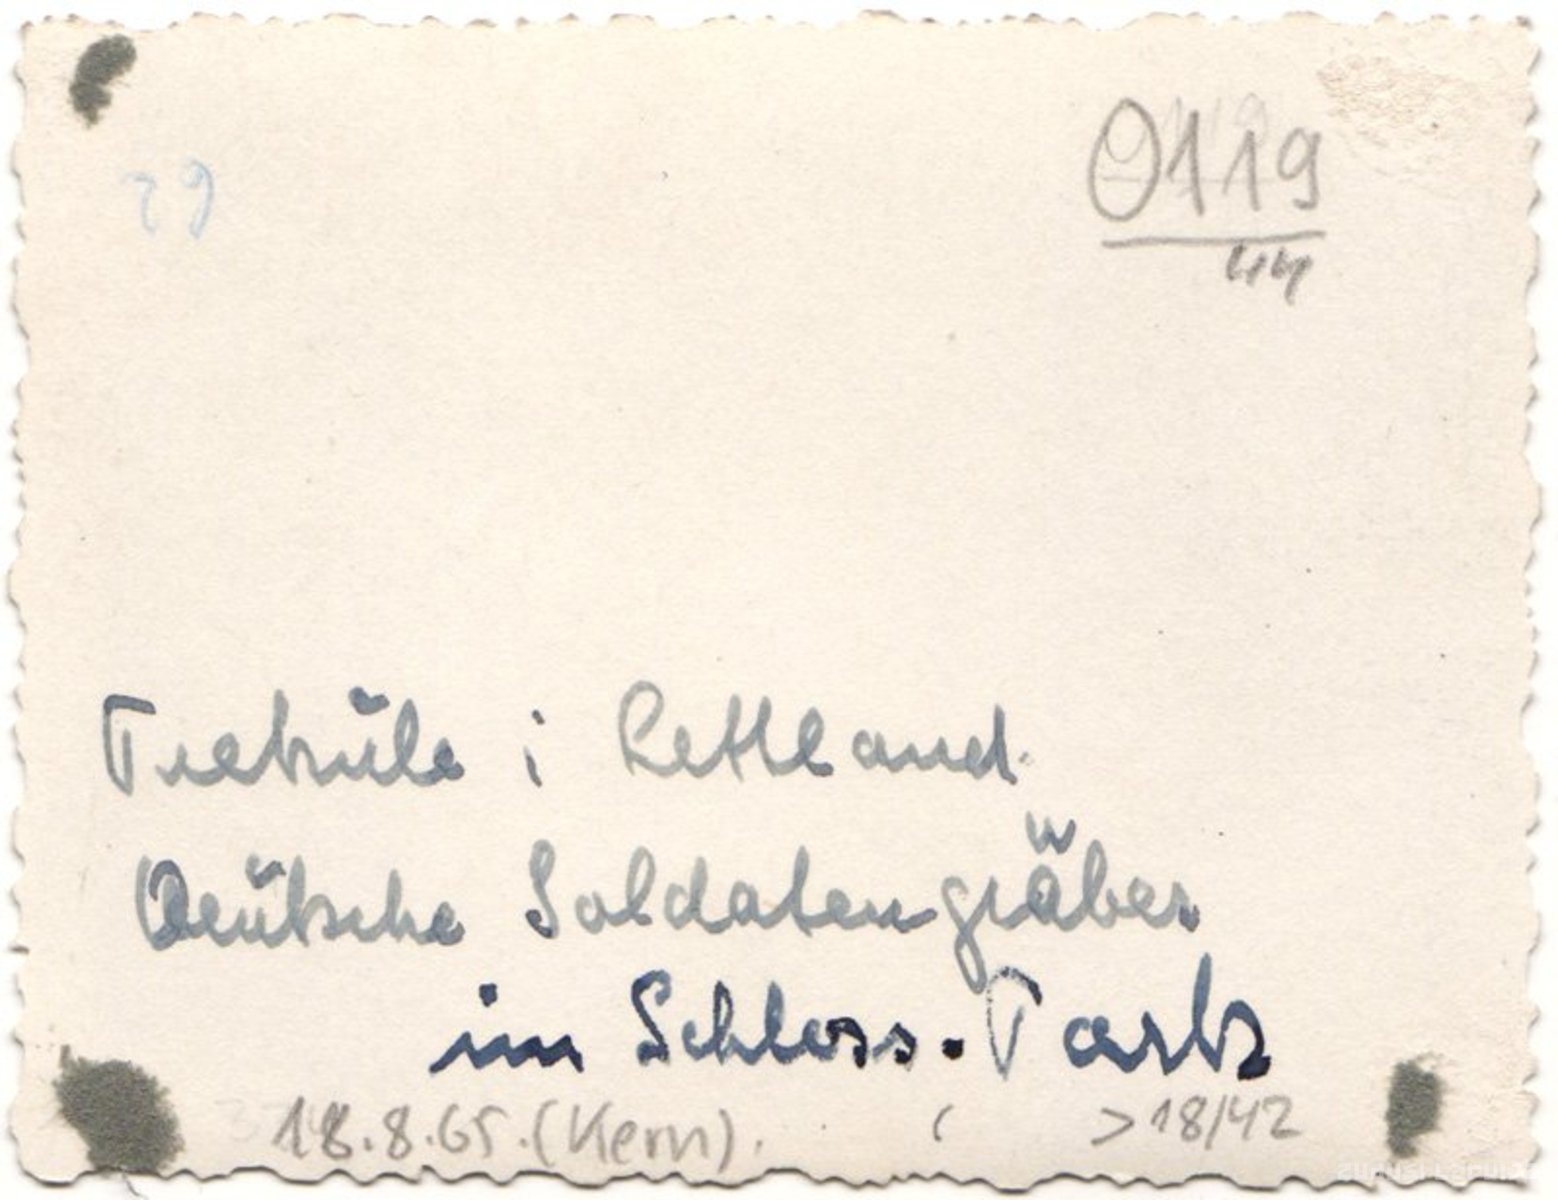 0119
44
29
Priekule i Lettland.
Deutsche Soldatengräber
im Schloss-Park
18.8.65.(Kern).
>18/42